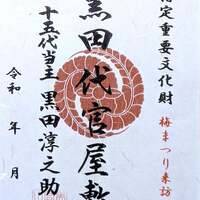 指定重要文化財
梅まつり来訪
黒田代官屋敷
十五代当主 黒田淳之助
令和 年 月